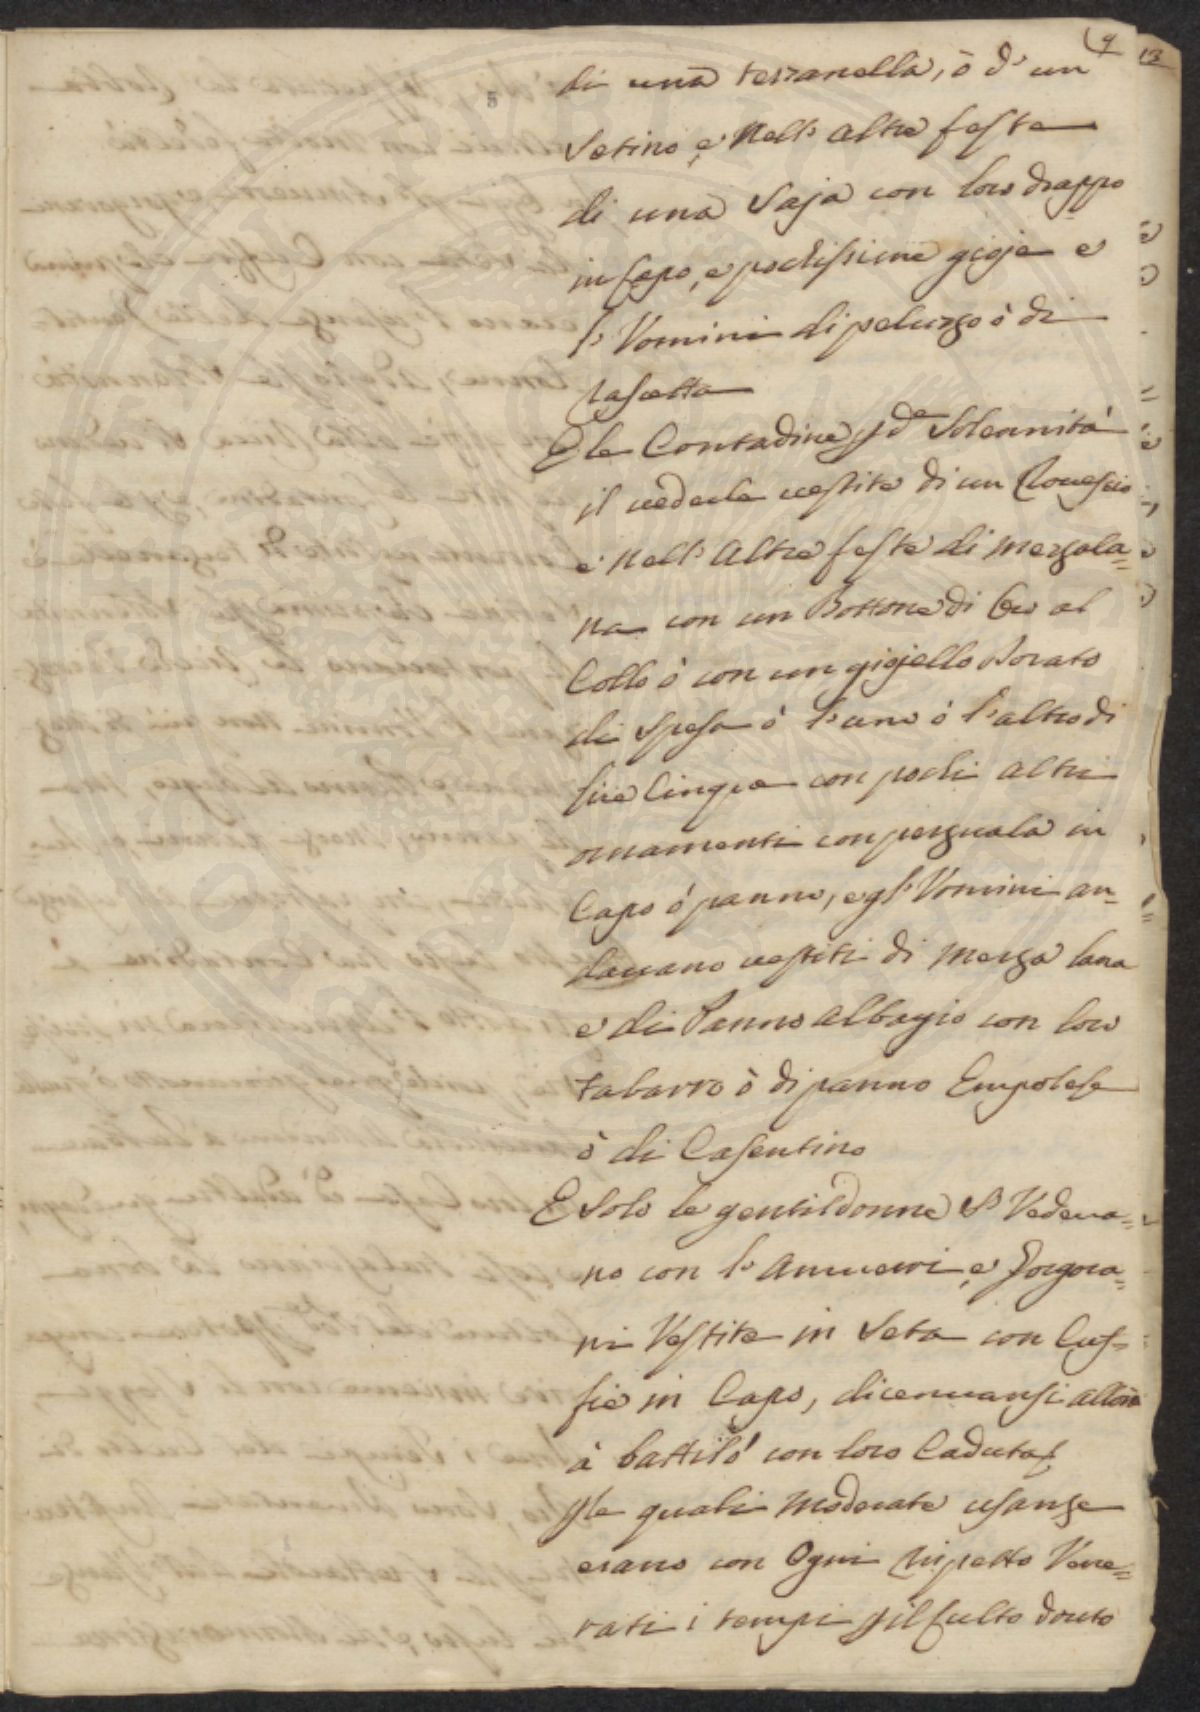 9
13
5
di una terzanella, ò d'un
Setino, e nell'altre feste
di una Saja con loro drappo
in Capo, e pochissime gioje e
l'Vomini di peluzzo ò di
rascetta
E le Contadine p d.e Solennità
il vederle vestite di un Rovescio
e nell'altre feste di mezzala=
na con un Bottone di Oro al
Collo ò con un giojello Dorato
di spesa ò l'uno ò l'altro di
lire Cinque con pochi altri
ornamenti con pezzuola in
Capo ò panno, e gl'Vomini an=
davano vestiti di mezza lana
e di Panno albagio con loro
tabarro ò di panno Empolese
ò di Casentino
E solo le gentildonne si Vedeva=
no con l' e Gorgora=
ni Vestite in Seta con Cuf=
fie in Capo, dicevansi allora
à battilò con loro Cadute
p le quali moderate usanze
erano con Ogni rispetto Vene=
rati i tempi p il culto douto